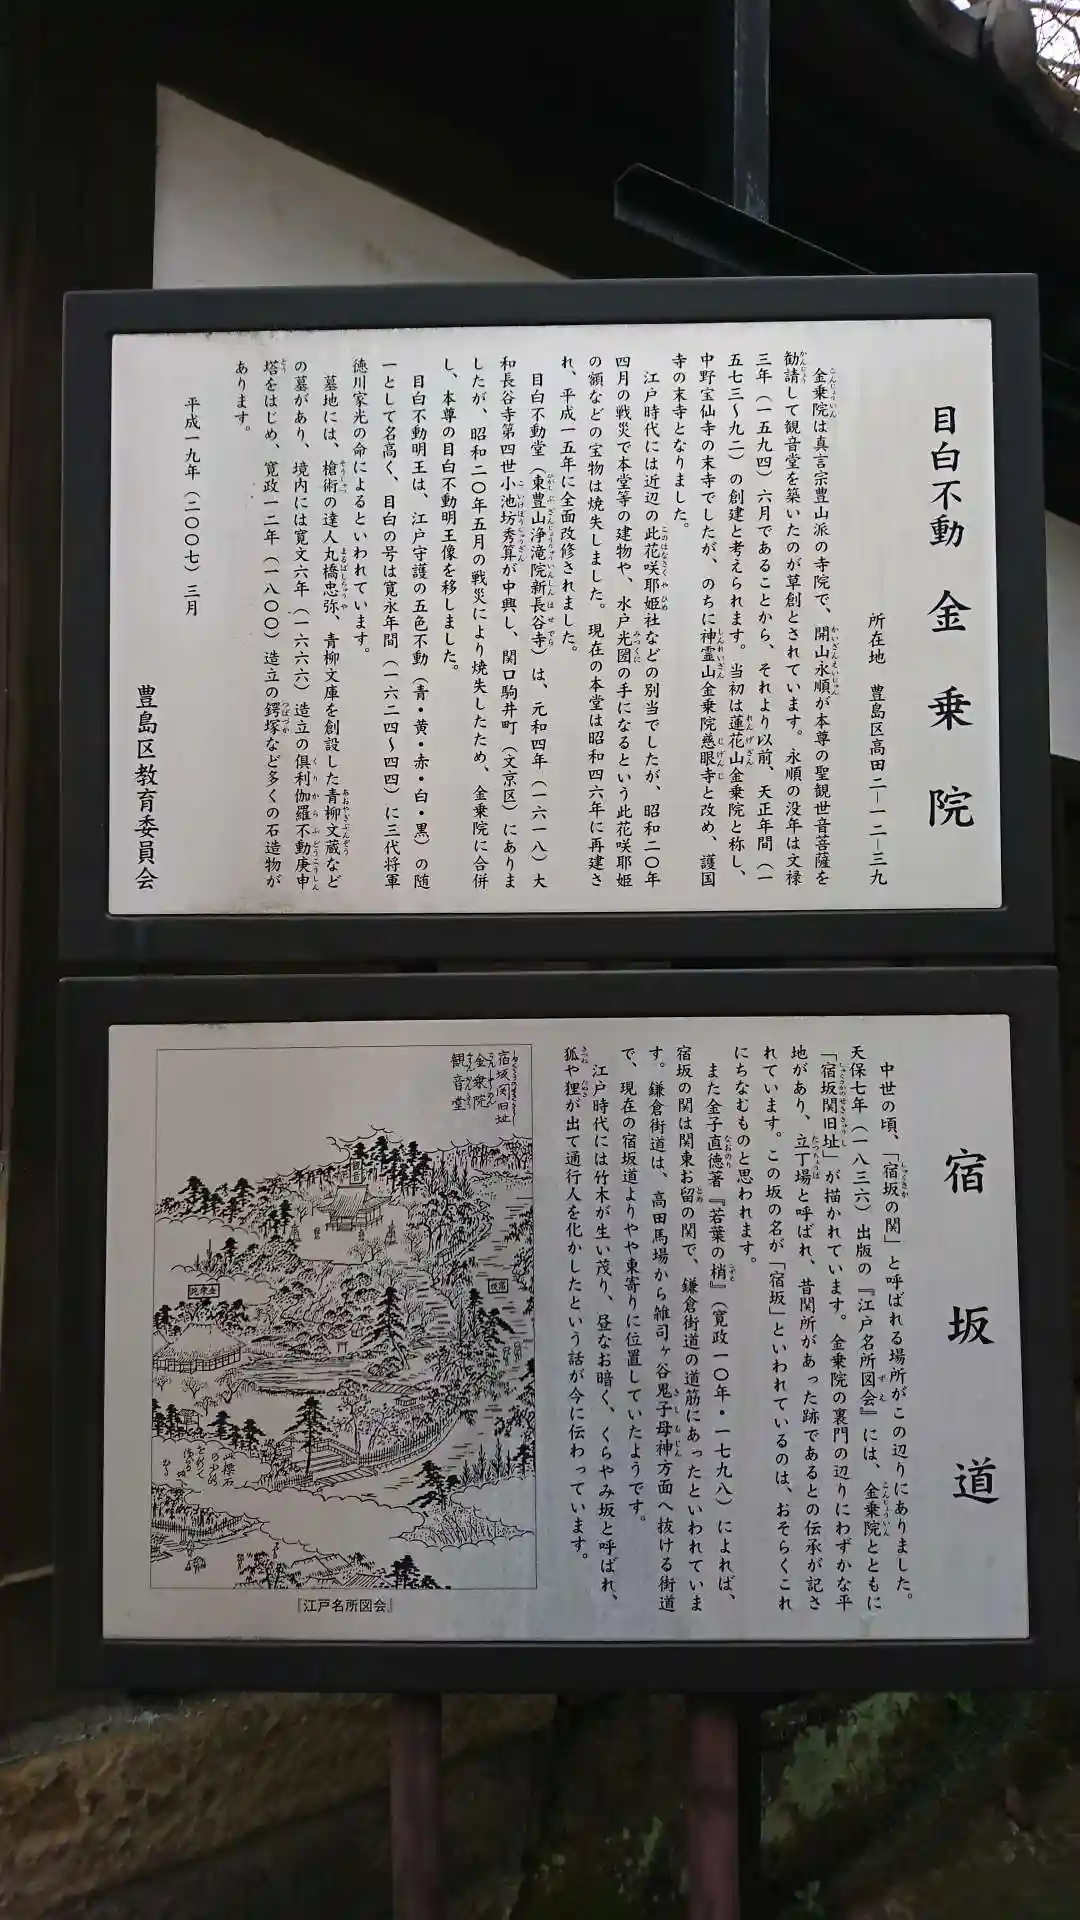 目白不動 金乗院
所在地 豊島区高田二―一二―三九
金乗院は真言宗豊山派の寺院で、開山永順が本尊の聖観世音菩薩を
勧請して観音堂を築いたのが草創とされています。永順の没年は文禄
三年（一五九四）六月であることから、それより以前、天正年間（一
五七三～九二）の創建と考えられます。当初は蓮花山金乗院と称し、
中野宝仙寺の末寺でしたが、のちに神霊山金乗院慈眼寺と改め、護国
寺の末寺となりました。
江戸時代には近辺の此花咲耶姫社などの別当でしたが、昭和二〇年
四月の戦災で本堂等の建物や、水戸光圀の手になるという此花咲耶姫
の額などの宝物は焼失しました。現在の本堂は昭和四六年に再建さ
れ、平成一五年に全面改修されました。
目白不動堂（東豊山浄滝院新長谷寺）は、元和四年（一六一八）大
和長谷寺第四世小池坊秀算が中興し、関口駒井町（文京区）にありま
したが、昭和二〇年五月の戦災により焼失したため、金乗院に合併
し、本尊の目白不動明王像を移しました。
目白不動明王は、江戸守護の五色不動（青・黄・赤・白・黒）の随
一として名高く、目白の号は寛永年間（一六二四～四四）に三代将軍
徳川家光の命によるといわれています。
墓地には、槍術の達人丸橋忠弥、青柳文庫を創設した青柳文蔵など
の墓があり、境内には寛文六年（一六六六）造立の倶利伽羅不動庚申
塔をはじめ、寛政一二年（一八〇〇）造立の鍔塚など多くの石造物が
あります。
平成一九年（二〇〇七）三月
豊島区教育委員会
宿坂道
中世の頃、「宿坂の関」と呼ばれる場所がこの辺りにありました。
天保七年（一八三六）出版の『江戸名所図会』には、金乗院とともに
「宿坂関旧址」が描かれています。金乗院の裏門の辺りにわずかな平
地があり、立丁場と呼ばれ、昔関所があった跡であるとの伝承が記さ
れています。この坂の名が「宿坂」といわれているのは、おそらくこれ
にちなむものと思われます。
また金子直德著『若葉の梢』（寛政一〇年・一七九八）によれば、
宿坂の関は関東お留の関で、鎌倉街道の道筋にあったといわれていま
す。鎌倉街道は、高田馬場から雑司ヶ谷鬼子母神方面へ抜ける街道
で、現在の宿坂道よりやや東寄りに位置していたようです。
江戸時代には竹木が生い茂り、昼なお暗く、くらやみ坂と呼ばれ、
狐や狸が出て通行人を化かしたという話が今に伝わっています。
宿坂関旧址
金乗院
観音堂
観音
金乗院
『江戸名所図会』